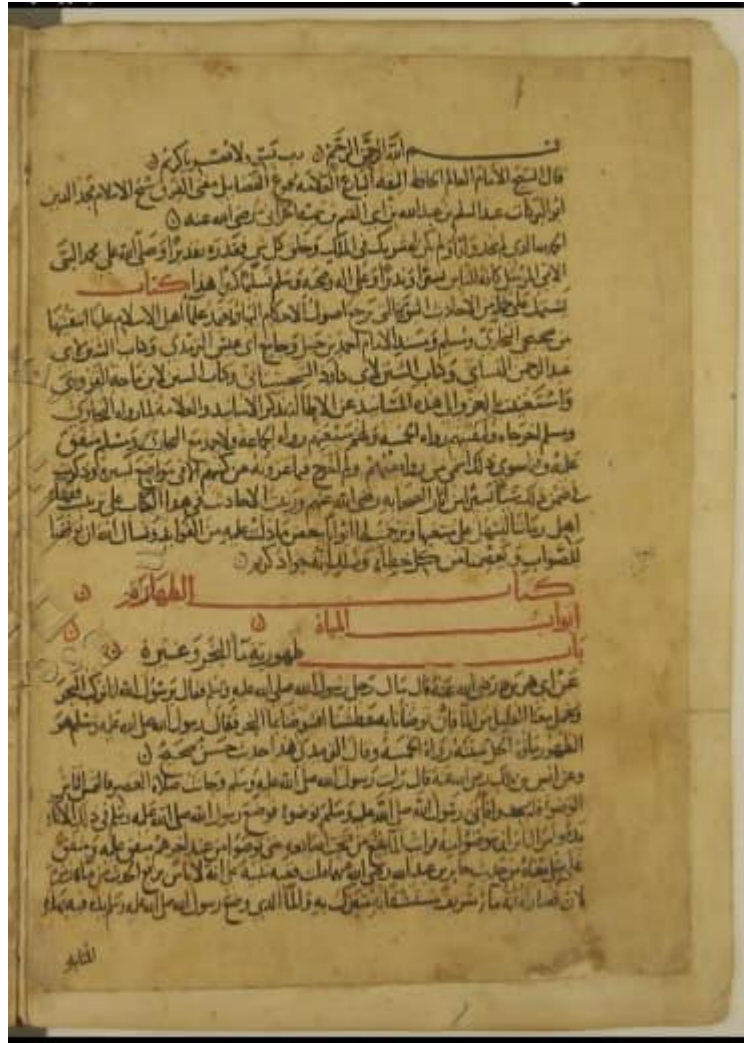 بسم الله الرحمن الرحيم رب تمم يا كريم
قال الشيخ الامام العالم الحافظ البارع العلامة مجموع الفضائل مفتي الفرق شيخ الاسلام مجد الدين
ابو البركات عبد السلم بن عبد الله بن ابي القسم رضي الله عنه
الحمد لله الذي لم يتخذ ولدا ولم يكن له شريك في الملك وخلق كل شي فقدره تقديرا وصلى الله على محمد النبي
الامي المرسل كافة للناس بشيرا ونذيرا وعلى اله وصحبه وسلم تسليما كثيرا هذا كتاب
يشتمل على جملة من الاحاديث النبوية التي ترجع اصول الاحكام اليها ويعتمد علما اهل الاسلام عليها انتقيتها
من صحيحي البخاري ومسلم ومسند الامام احمد بن حنبل وجامع ابي عيسى الترمذي وكتاب السنن لابي
عبد الرحمن النسائي وكتاب السنن لابي داود السجستاني وكتاب السنن لابن ماجه القزويني
واستغنيت بالعزو الى هذه المسانيد عن الاطالة بذكر الاسانيد والعلامة لما رواه البخاري
ومسلم اخرجاه ولبقيتهم رواه الخمسة ولهم سبعتهم رواه الجماعة ولاحمد مع البخاري ومسلم متفق
عليه وفيما سوى ذلك اسمي من رواه منهم ولم اخرج فيما عزوته عن كتبهم الا في مواضع يسيرة وذكرت
في ضمن ذلك شيئا يسيرا من اثار الصحابة رضي الله عنهم ورتبت الاحاديث في هذا الكتاب على ترتيب فقهاء
اهل زماننا لتسهل على مبتغيها وترجمت لها ابوابا ببعض ما دلت عليه من الفوائد ونسال الله ان يوفقنا
للصواب ويعصمنا من كل خطاء وزلل انه جواد كريم
كتاب الطهارة
ابواب المياه
باب طهورية ماء البحر وغيره
عن ابي هريرة رضي الله عنه قال سال رجل رسول الله صلى الله عليه وسلم فقال يرسول الله انا نركب البحر
ونحمل معنا القليل من الماء فان توضأنا به عطشنا افنتوضا بماء البحر فقال رسول الله صلى الله عليه وسلم هو
الطهور ماؤه الحل ميتته رواه الخمسة وقال الترمذي هذا حديث حسن صحيح
وعن انس بن مالك رضي الله عنه قال رايت رسول الله صلى الله عليه وسلم وحانت صلاة العصر فالتمس الناس
الوضوء فلم يجدوا فاتي رسول الله صلى الله عليه وسلم بوضوء فوضع رسول الله صلى الله عليه وسلم في ذلك الاناء
يده وامر الناس ان يتوضوا منه فرايت الماء ينبع من تحت اصابعه حتى توضؤا من عند اخرهم متفق عليه ومتفق
على مثل معناه من حديث جابر بن عبد الله رضي الله عنهما وفيه تنبيه على انه لا باس برفع الحدث من ماء زمزم
لان قصاراه انه ماء شريف مستشفى به متبرك به والماء الذي وضع رسول الله صلى الله عليه وسلم يده فيه بهذه
المثابة